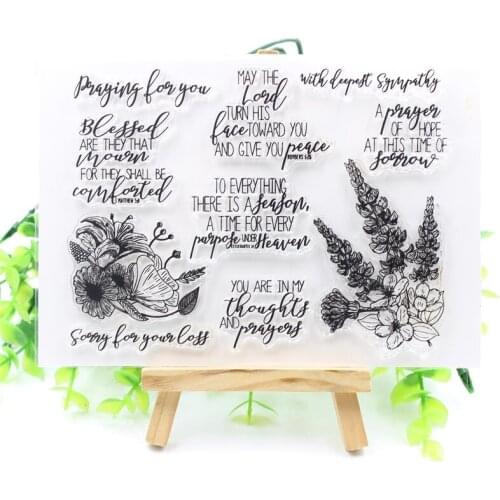 Praying for you
MAY THE
Lord
TURN HIS
face TOWARD YOU
AND GIVE YOU peace
NUMBERS 6:26
With deepest Sympathy
Blessed
ARE THEY THAT
mourn
FOR THEY SHALL BE
comforted
MATTHEW 5:4
A prayer
OF HOPE
AT THIS TIME OF
sorrow
TO EVERYTHING
THERE IS A season,
A TIME FOR EVERY
purpose UNDER Heaven
YOU ARE IN MY
thoughts
AND prayers
Sorry for your loss